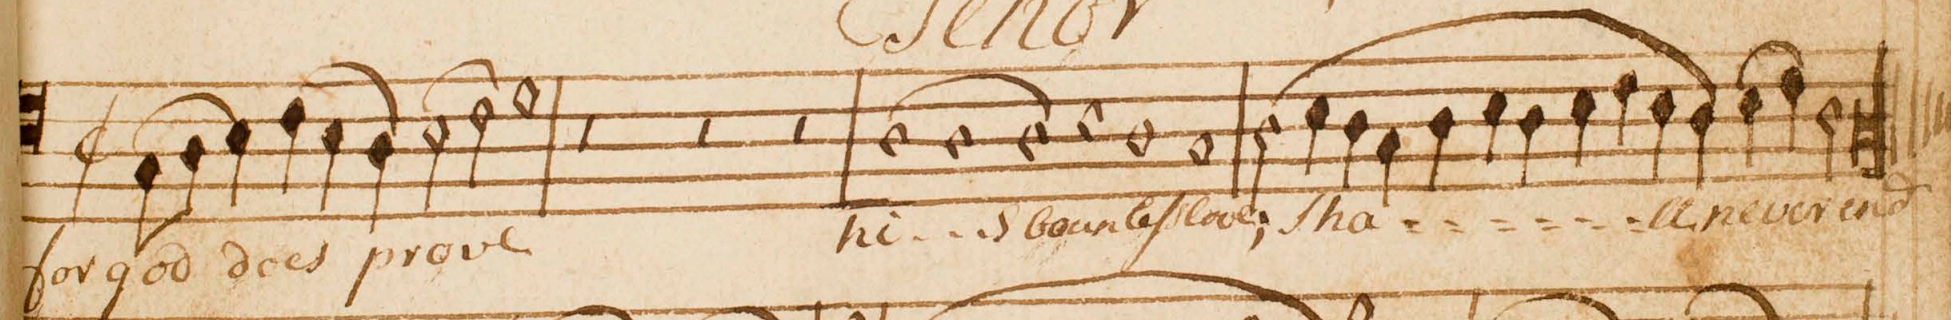 Tenor
for god does prove hi - - s bounless love; sha - - - - - - - ll never end